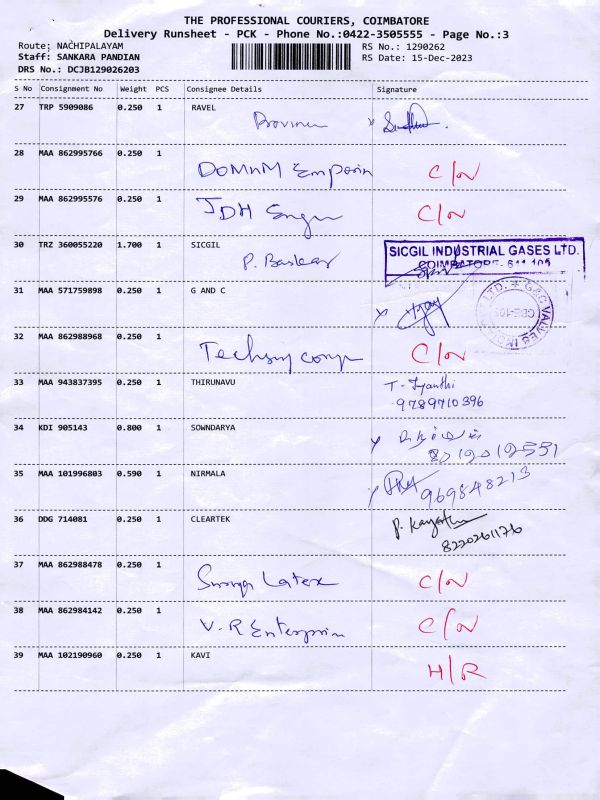 THE PROFESSIONAL COURIERS, COIMBATORE
Delivery Runsheet - PCK - Phone No.:0422-3505555 - Page No.:3
Route: NACHIPALAYAM RS No.: 1290262
Staff: SANKARA PANDIAN RS Date: 15-Dec-2023
DRS No.: DCJB129026203
S No Consignment No Weight PCS Consignee Details Signature
27 TRP 5909086 0.250 1 RAVEL
28 MAA 862995766 0.250 1
C/N
29 MAA 862995576 0.250 1
JDH C/N
30 TRZ 360055220 1.700 1 SICGIL
P. Baskar
SICGIL INDUSTRIAL GASES LTD.
COIMBATORE - 641 105
31 MAA 571759898 0.250 1 G AND C
32 MAA 862988968 0.250 1
C/N
33 MAA 943837395 0.250 1 THIRUNAVU
T. Jyanthi
9789710396
34 KDI 905143 0.800 1 SOWNDARYA
35 MAA 101996803 0.590 1 NIRMALA
969848213
36 DDG 714081 0.250 1 CLEARTEK
8220261176
37 MAA 862988478 0.250 1
Latex C/N
38 MAA 862984142 0.250 1
V.R C/N
39 MAA 102190960 0.250 1 KAVI
H/R